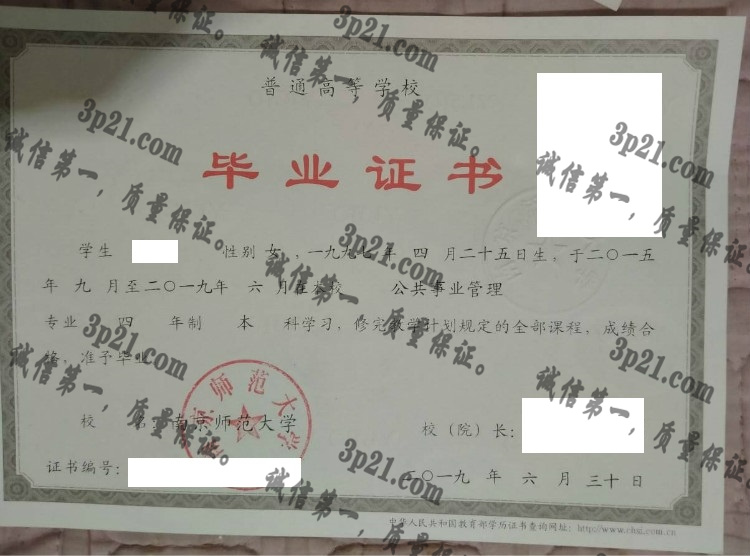 普通高等学校
毕业证书
学生 性别 女 ，一九九七 年 四 月二十五日生，于二〇一五
年 九 月至二〇一九年 六 月在本校 公共事业管理
专业 四 年制 本 科学习，修完教学计划规定的全部课程，成绩合
格，准予毕业
校 名：南京师范大学
校（院）长：
证书编号：
二〇一九 年 六 月 三十 日
中华人民共和国教育部学历证书查询网址：http://www.chsi.com.cn
南京师范大学
3p21.com
诚信第一，质量保证。
3p21.com
诚信第一，质量保证。
3p21.com
诚信第一，质量保证。
3p21.com
诚信第一，质量保证。
3p21.com
诚信第一，质量保证。
3p21.com
诚信第一，质量保证。
3p21.com
诚信第一，质量保证。